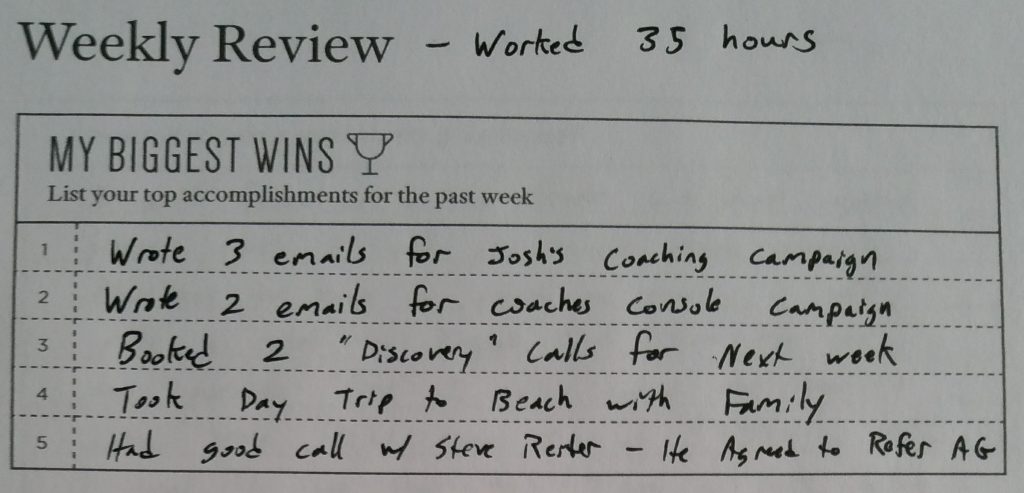 Weekly Review - Worked 35 hours
MY BIGGEST WINS
List your top accomplishments for the past week
1 Wrote 3 emails for Josh's Coaching Campaign
2 Wrote 2 emails for coaches console campaign
3 Booked 2 "Discovery" Calls for Next week
4 Took Day Trip to Beach with Family
5 Had good call w/ Steve - He Agreed to Refer AG